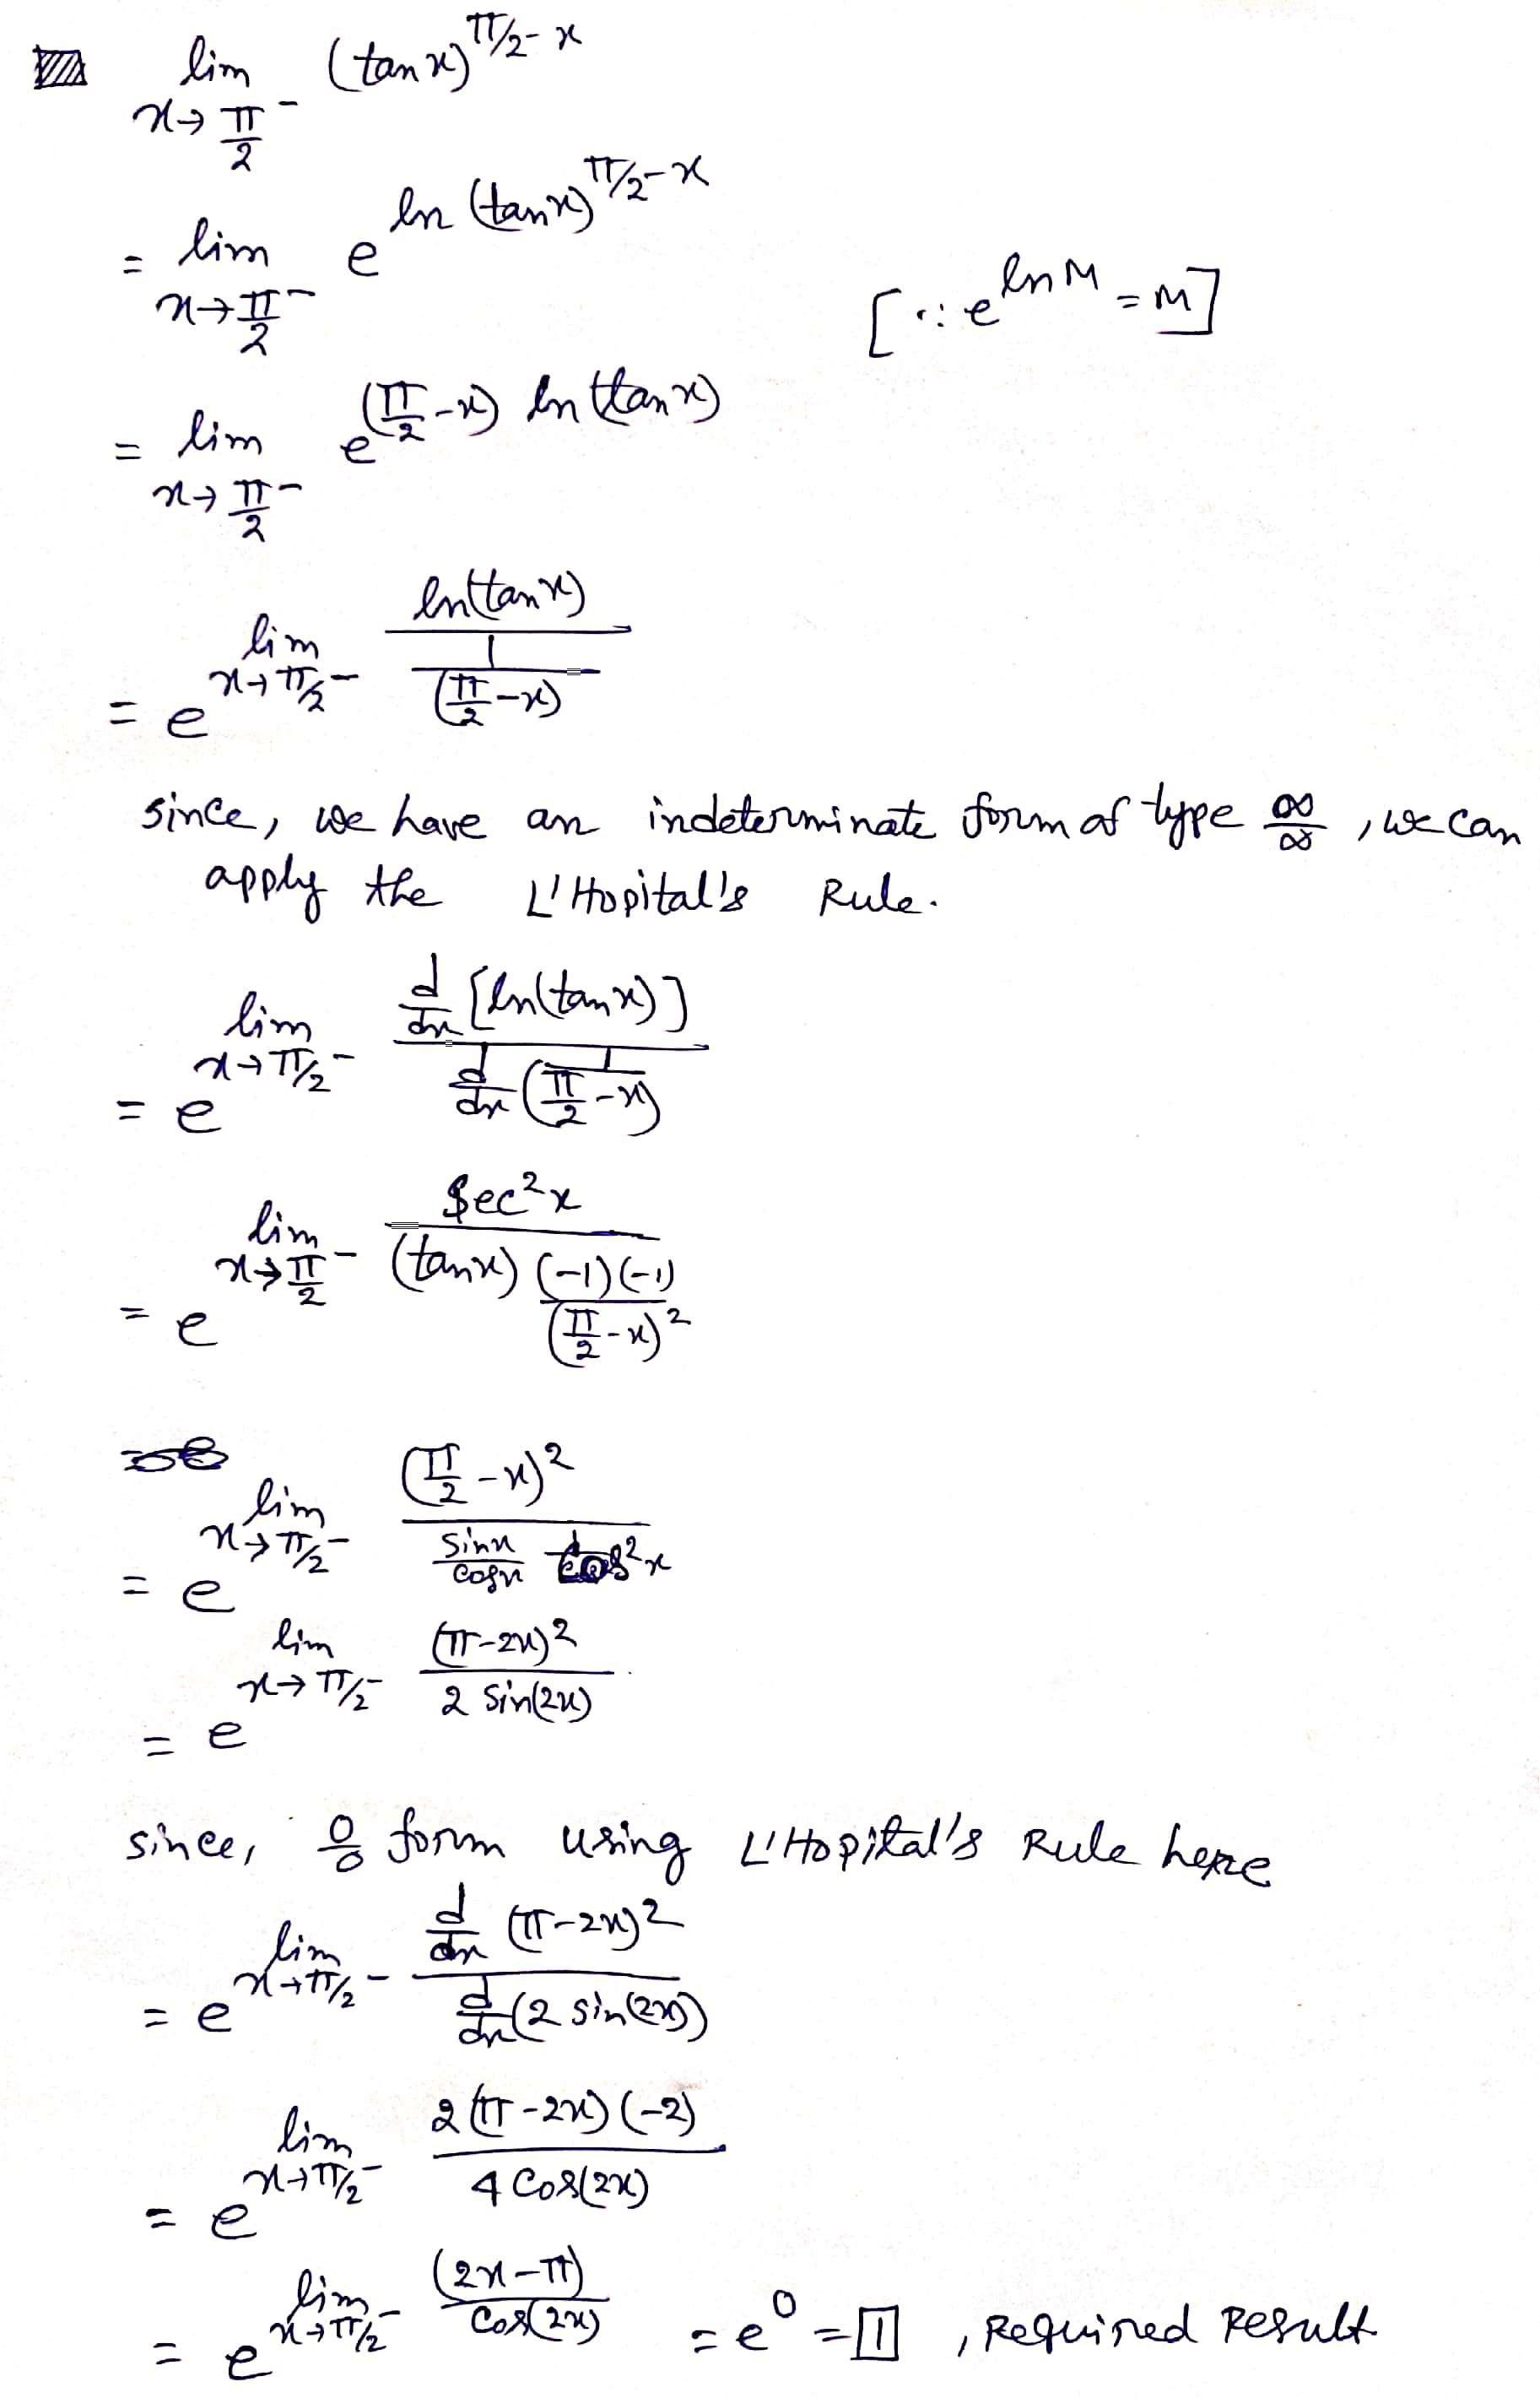 lim_{x→π/2⁻} (tan x)^{π/2 - x}
= lim_{x→π/2⁻} e^{ln (tan x)^{π/2 - x}} [∵ e^{ln M} = M]
= lim_{x→π/2⁻} e^{(π/2 - x) ln (tan x)}
= e^{lim_{x→π/2⁻} ln(tan x) / (1/(π/2 - x))}
since, we have an indeterminate form of type ∞/∞, we can
apply the L'Hopital's Rule.
= e^{lim_{x→π/2⁻} d/dx [ln(tan x)] / d/dx (1/(π/2 - x))}
= e^{lim_{x→π/2⁻} sec²x / ((tan x) (-1)(-1)/(π/2 - x)²)}
= e^{lim_{x→π/2⁻} (π/2 - x)² / (sin x/cos x cos²x)}
= e^{lim_{x→π/2⁻} (π - 2x)² / (2 sin(2x))}
since, 0/0 form using L'Hopital's Rule here
= e^{lim_{x→π/2⁻} d/dx (π - 2x)² / d/dx (2 sin(2x))}
= e^{lim_{x→π/2⁻} 2(π - 2x)(-2) / (4 cos(2x))}
= e^{lim_{x→π/2⁻} (2x - π) / cos(2x)} = e⁰ = 1, Required Result